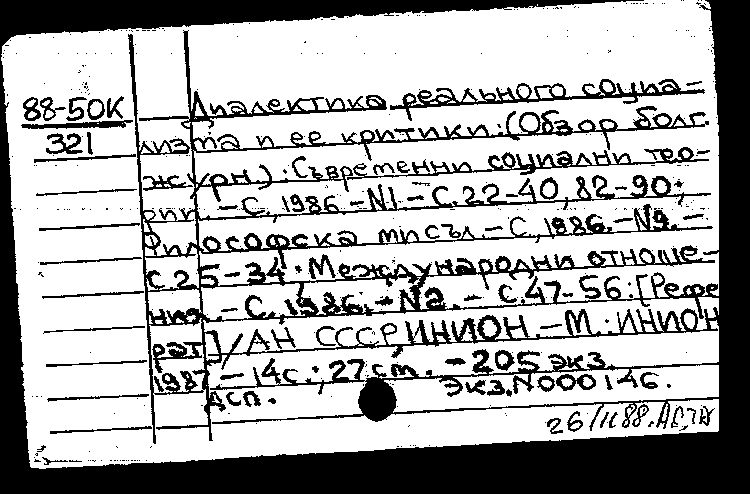 88-50К
321
Диалектика реального социа-
лизма и ее критики: (Обзор болг.
журн.): Съвременни социални тео-
рии. - С., 1986. - N1. - С. 22-40, 82-90;
Философска мисъл. - С., 1986. - N9. -
С 25-34; Международни отноше-
ния. - С., 1986. - N2. - С. 47-56: [Рефе
рат] / АН СССР, ИНИОН. - М.: ИНИОН
1987. - 14 с.; 27 см. - 205 экз.
Дсп. Экз. N000146.
26/II 88.